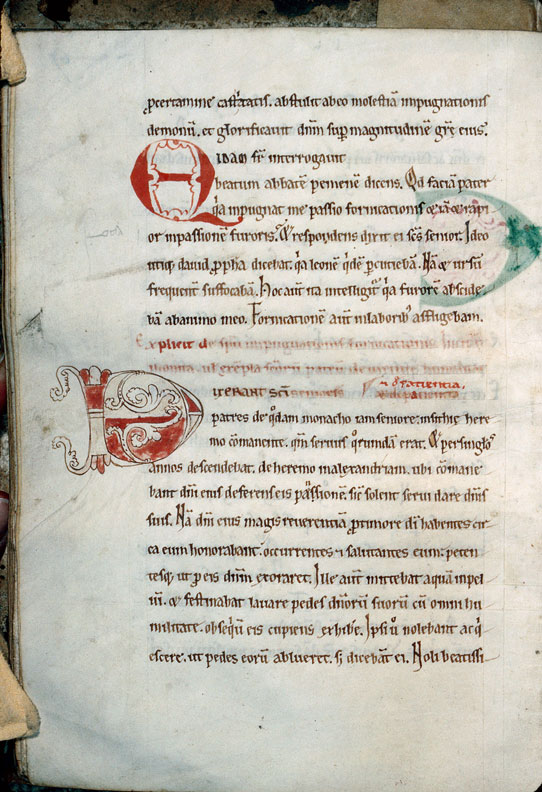 ꝓcertamine castitatis. abstulit abeo molestiā impugnationis
demonū. et glorificauit dnm̄ sup magnitudinē grē eius.
Qvidam fr̄ interrogauit
beatum abbatē pemenē dicens. Qd faciā pater
qa inpugnat me passio fornicationis & iā & rapi
or inpassionē furoris. & respondens dixit ei scs̄ senior. Ideo
utiq; dauid ꝓpha dicebat. qa leonē qdē pcutiebā. Nā & ursū
frequent suffocabā. Hoc aut̄ ita intelligit qa furorē abscide
bā abanimo meo. Fornicationē aut̄ inlaborib; affligebam.
Explicit de
Dixerant sci
patres de qdam monacho iam seniore. insithie here
mo cōmanente. qm̄ seruus qrundā erat. & persinglos
annos descendebat. de heremo inalexandriam. ubi cōmane
bant dnī eius deferens eis passionē. sic̄ solent serui dare dnīs
suis. Nā dnī eius magis reuerentiā ꝓtimore dī habentes cir
ca eum honorabant. occurrentes & salutantes eum. peten
tesq; ut ꝓ eis dnm̄ exoraret. Ille aut̄ mittebat aquā inpel
uī. & festinabat lauare pedes dnōrū suorū cū omni hu
militate. obsequiū eis cupiens exhibe. Ipsi ū nolebant acq
escere. ut pedes eorū ablueret. s; dicebāt ei. Noli beatissi